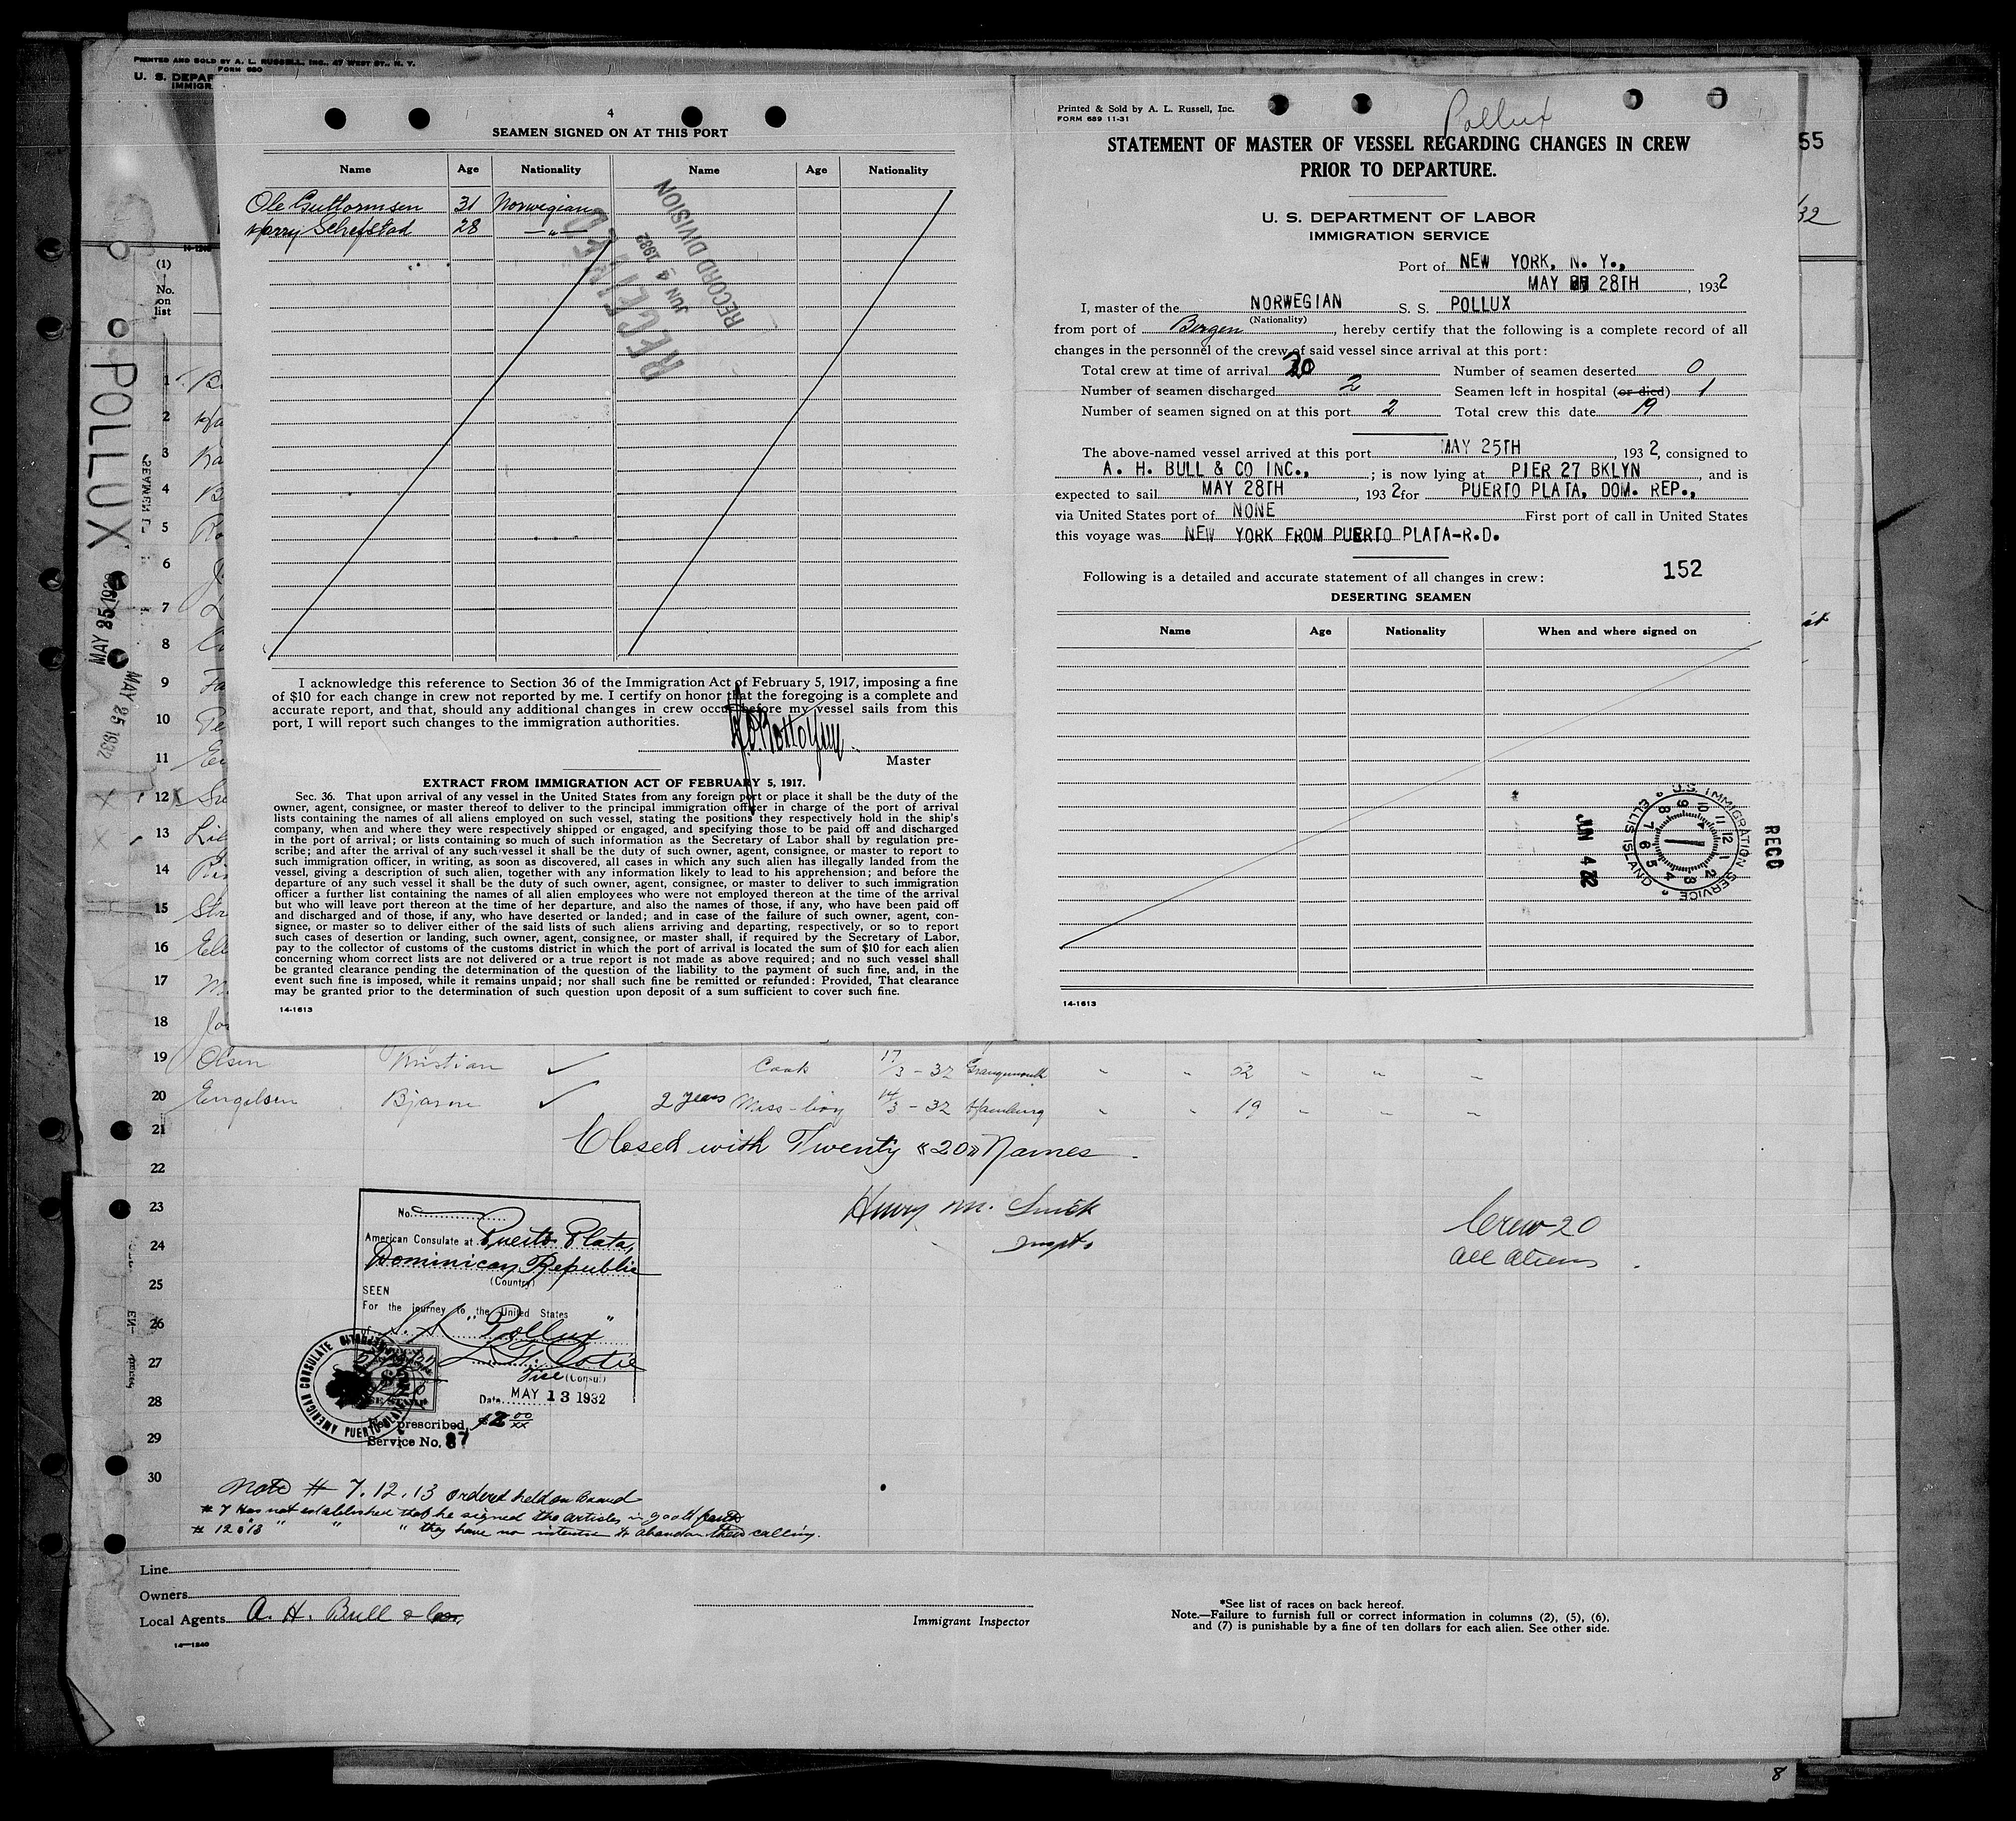 PRINTED AND SOLD BY A. L. RUSSELL, INC., 47 WEST ST., N. Y.
FORM 680
U. S. DEPAR
IMMIGR
4
SEAMEN SIGNED ON AT THIS PORT
Name Age Nationality Name Age Nationality
Ole Guttormsen 31 Norwegian
Harry Schefstad 28 —"—
RECEIVED
JUN 4 1932
RECORD DIVISION
I acknowledge this reference to Section 36 of the Immigration Act of February 5, 1917, imposing a fine
of $10 for each change in crew not reported by me. I certify on honor that the foregoing is a complete and
accurate report, and that, should any additional changes in crew occur before my vessel sails from this
port, I will report such changes to the immigration authorities.
Master
EXTRACT FROM IMMIGRATION ACT OF FEBRUARY 5, 1917.
Sec. 36. That upon arrival of any vessel in the United States from any foreign port or place it shall be the duty of the
owner, agent, consignee, or master thereof to deliver to the principal immigration officer in charge of the port of arrival
lists containing the names of all aliens employed on such vessel, stating the positions they respectively hold in the ship's
company, when and where they were respectively shipped or engaged, and specifying those to be paid off and discharged
in the port of arrival; or lists containing so much of such information as the Secretary of Labor shall by regulation pre-
scribe; and after the arrival of any such vessel it shall be the duty of such owner, agent, consignee, or master to report to
such immigration officer, in writing, as soon as discovered, all cases in which any such alien has illegally landed from the
vessel, giving a description of such alien, together with any information likely to lead to his apprehension; and before the
departure of any such vessel it shall be the duty of such owner, agent, consignee, or master to deliver to such immigration
officer a further list containing the names of all alien employees who were not employed thereon at the time of the arrival
but who will leave port thereon at the time of her departure, and also the names of those, if any, who have been paid off
and discharged and of those, if any, who have deserted or landed; and in case of the failure of such owner, agent, con-
signee, or master so to deliver either of the said lists of such aliens arriving and departing, respectively, or so to report
such cases of desertion or landing, such owner, agent, consignee, or master shall, if required by the Secretary of Labor,
pay to the collector of customs of the customs district in which the port of arrival is located the sum of $10 for each alien
concerning whom correct lists are not delivered or a true report is not made as above required; and no such vessel shall
be granted clearance pending the determination of the question of the liability to the payment of such fine, and, in the
event such fine is imposed, while it remains unpaid; nor shall such fine be remitted or refunded: Provided, That clearance
may be granted prior to the determination of such question upon deposit of a sum sufficient to cover such fine.
14-1613
Printed & Sold by A. L. Russell, Inc.
FORM 689 11-31
Pollux
STATEMENT OF MASTER OF VESSEL REGARDING CHANGES IN CREW
PRIOR TO DEPARTURE.
U. S. DEPARTMENT OF LABOR
IMMIGRATION SERVICE
Port of NEW YORK, N. Y.,
MAY 28TH, 1932
I, master of the NORWEGIAN S. S. POLLUX
(Nationality)
from port of Bergen, hereby certify that the following is a complete record of all
changes in the personnel of the crew of said vessel since arrival at this port:
Total crew at time of arrival 20 Number of seamen deserted 0
Number of seamen discharged 2 Seamen left in hospital (or died) 1
Number of seamen signed on at this port 2 Total crew this date 19
The above-named vessel arrived at this port MAY 25TH, 1932, consigned to
A. H. BULL & CO INC., ; is now lying at PIER 27 BKLYN, and is
expected to sail MAY 28TH, 1932 for PUERTO PLATA, DOM. REP.,
via United States port of NONE First port of call in United States
this voyage was NEW YORK FROM PUERTO PLATA-R.D.
Following is a detailed and accurate statement of all changes in crew: 152
DESERTING SEAMEN
Name Age Nationality When and where signed on
U.S. IMMIGRATION SERVICE ELLIS ISLAND
RECD
JUN 4 32
14-1613
55
32
(1)
No.
on
list
POLLUX
MAY 25 1932
MAY 25 1932
1
2
3
4
5
6
7
8
9
10
11
12
13
14
15
16
17
18
19 Olsen Kristian Cook 17/3-32 Grangemouth " " 32 " " "
20 Engelsen Bjarne 2 years Mess-boy 14/3-32 Hamburg " " 19 " " "
21
Closed with Twenty «20» Names
22
23
Henry M. Smith
Insptr
24
25
26
27
28
29
30
Crew 20
all aliens
No.
American Consulate at Puerto Plata,
Dominican Republic
(Country)
SEEN
For the journey to the United States
S. S. "Pollux"
Vice (Consul)
Date MAY 13 1932
AMERICAN CONSULATE PUERTO PLATA
Fee prescribed, $2 00/xx
Service No. 87
Note # 7.12.13 ordered held on board
# 7 Has not established that he signed the articles in good faith
# 12 & 13 " " " they have no intention to abandon their calling.
Line
Owners
Local Agents A. H. Bull & Co.
14—1240
Immigrant Inspector
*See list of races on back hereof.
Note.—Failure to furnish full or correct information in columns (2), (5), (6),
and (7) is punishable by a fine of ten dollars for each alien. See other side.
8